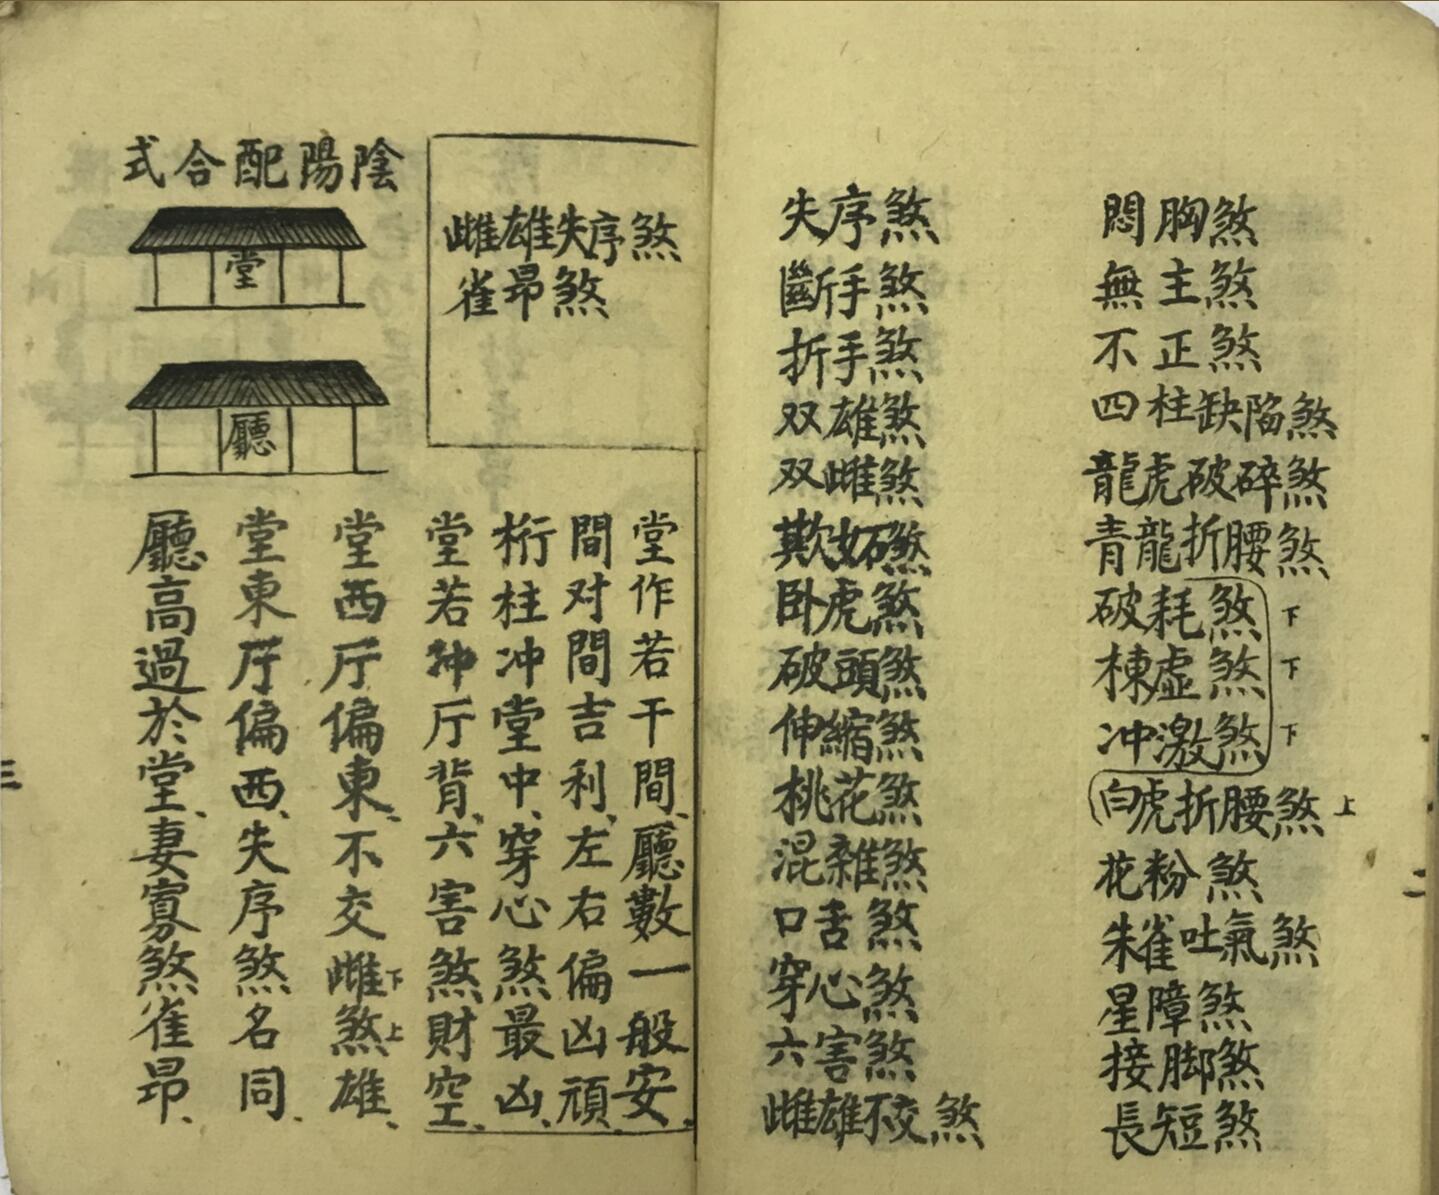 悶胸煞
無主煞
不正煞
四柱缺陷煞
龍虎破碎煞
青龍折腰煞
破耗煞下
棟虛煞下
冲激煞下
白虎折腰煞上
花粉煞
朱雀吐氣煞
星障煞
接脚煞
長短煞
失序煞
斷手煞
折手煞
双雄煞
双雌煞
欺奴煞
卧虎煞
破頭煞
伸縮煞
桃花煞
混雜煞
口舌煞
穿心煞
六害煞
雌雄不交煞
雌雄失序煞
雀昂煞
陰陽配合式
堂
廳
堂作若干間、廳數一般安、
間对間吉利、左右偏凶頑、
桁柱冲堂中、穿心煞最凶、
堂若冲厅背、六害煞財空、
堂西厅偏東、不交雌下煞上雄、
堂東厅偏西、失序煞名同、
廳高過於堂、妻寡煞雀昂、
三
二